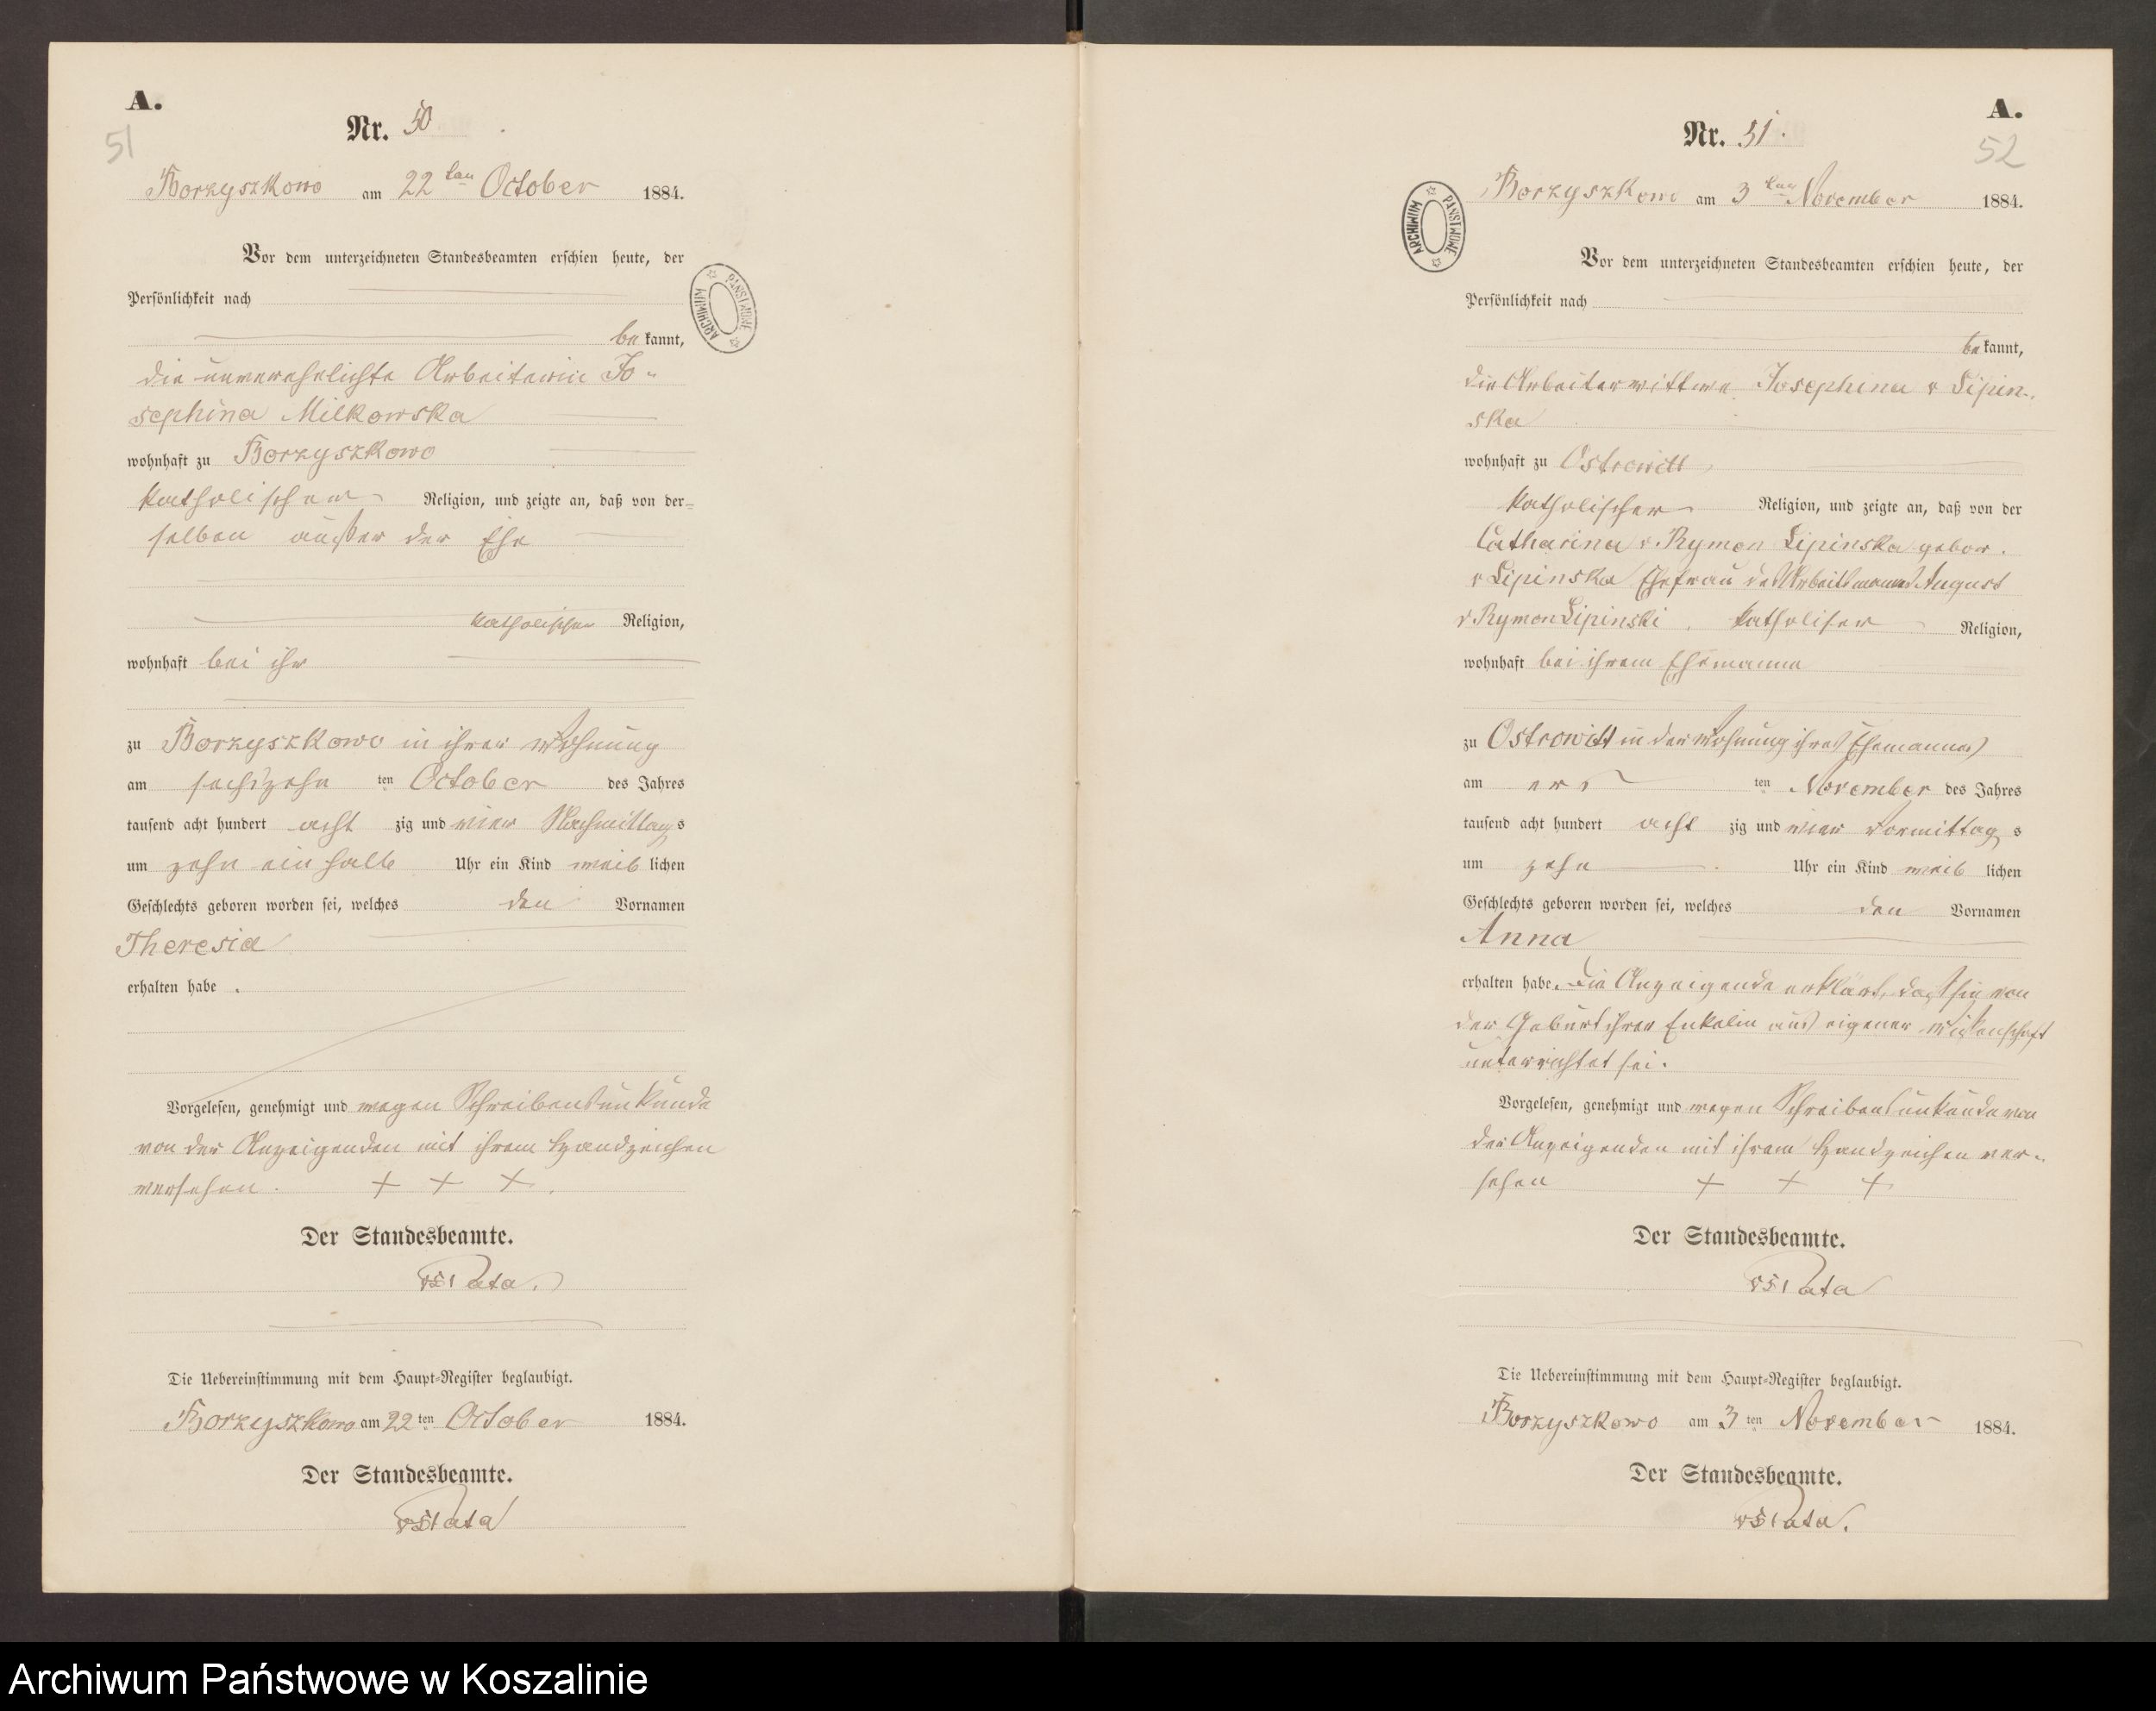 A.
51
Nr. 50
Borzyszkowo am 22 ten October 1884.
Vor dem unterzeichneten Standesbeamten erschien heute, der
Persönlichkeit nach
be kannt,
die unverehelichte Arbeiterin Jo-
sephina Milkowska
wohnhaft zu Borzyszkowo
katholischer Religion, und zeigte an, daß von der-
selben außer der Ehe
katholischer Religion,
wohnhaft bei ihr
zu Borzyszkowo in ihrer Wohnung
am sechszehn ten October des Jahres
tausend acht hundert acht zig und vier Nachmittags
um zehn ein halb Uhr ein Kind weib lichen
Geschlechts geboren worden sei, welches den Vornamen
Theresia
erhalten habe.
Vorgelesen, genehmigt und wegen Schreibensunkunde
von der Anzeigenden mit ihrem Handzeichen
versehen. + + +.
Der Standesbeamte.
Die Uebereinstimmung mit dem Haupt-Register beglaubigt.
Borzyszkowo am 22 ten October 1884.
Der Standesbeamte.
ARCHIWUM PAŃSTWOWE
A.
52
Nr. 51.
Borzyszkowo am 3 ten November 1884.
Vor dem unterzeichneten Standesbeamten erschien heute, der
Persönlichkeit nach
be kannt,
die Arbeiterwittwe Josephina v Lipin-
ska
wohnhaft zu Ostrowitt
katholischer Religion, und zeigte an, daß von der
Catharina v Rymon Lipinska gebor.
v Lipinska Ehefrau des Arbeitsmannes August
v Rymon Lipinski, katholiser Religion,
wohnhaft bei ihrem Ehemanne
zu Ostrowitt in der Wohnung ihres Ehemannes
am ers ten November des Jahres
tausend acht hundert acht zig und vier Vormittags
um zehn Uhr ein Kind weib lichen
Geschlechts geboren worden sei, welches den Vornamen
Anna
erhalten habe. Die Anzeigende erklärt, daß sie von
der Geburt ihrer Enkelin aus eigener Wissenschaft
unterrichtet sei.
Vorgelesen, genehmigt und wegen Schreibensunkunde von
der Anzeigenden mit ihrem Handzeichen ver-
sehen + + +
Der Standesbeamte.
Die Uebereinstimmung mit dem Haupt-Register beglaubigt.
Borzyszkowo am 3 ten November 1884.
Der Standesbeamte.
ARCHIWUM PAŃSTWOWE
Archiwum Państwowe w Koszalinie